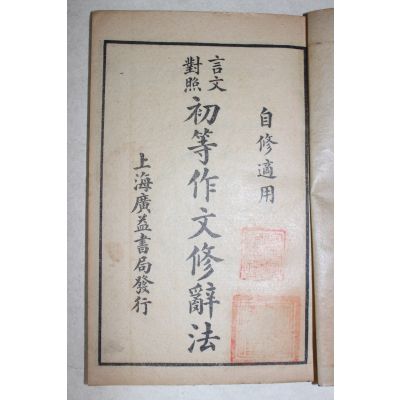 自修適用
言文對照
初等作文修辭法
上海廣益書局發行